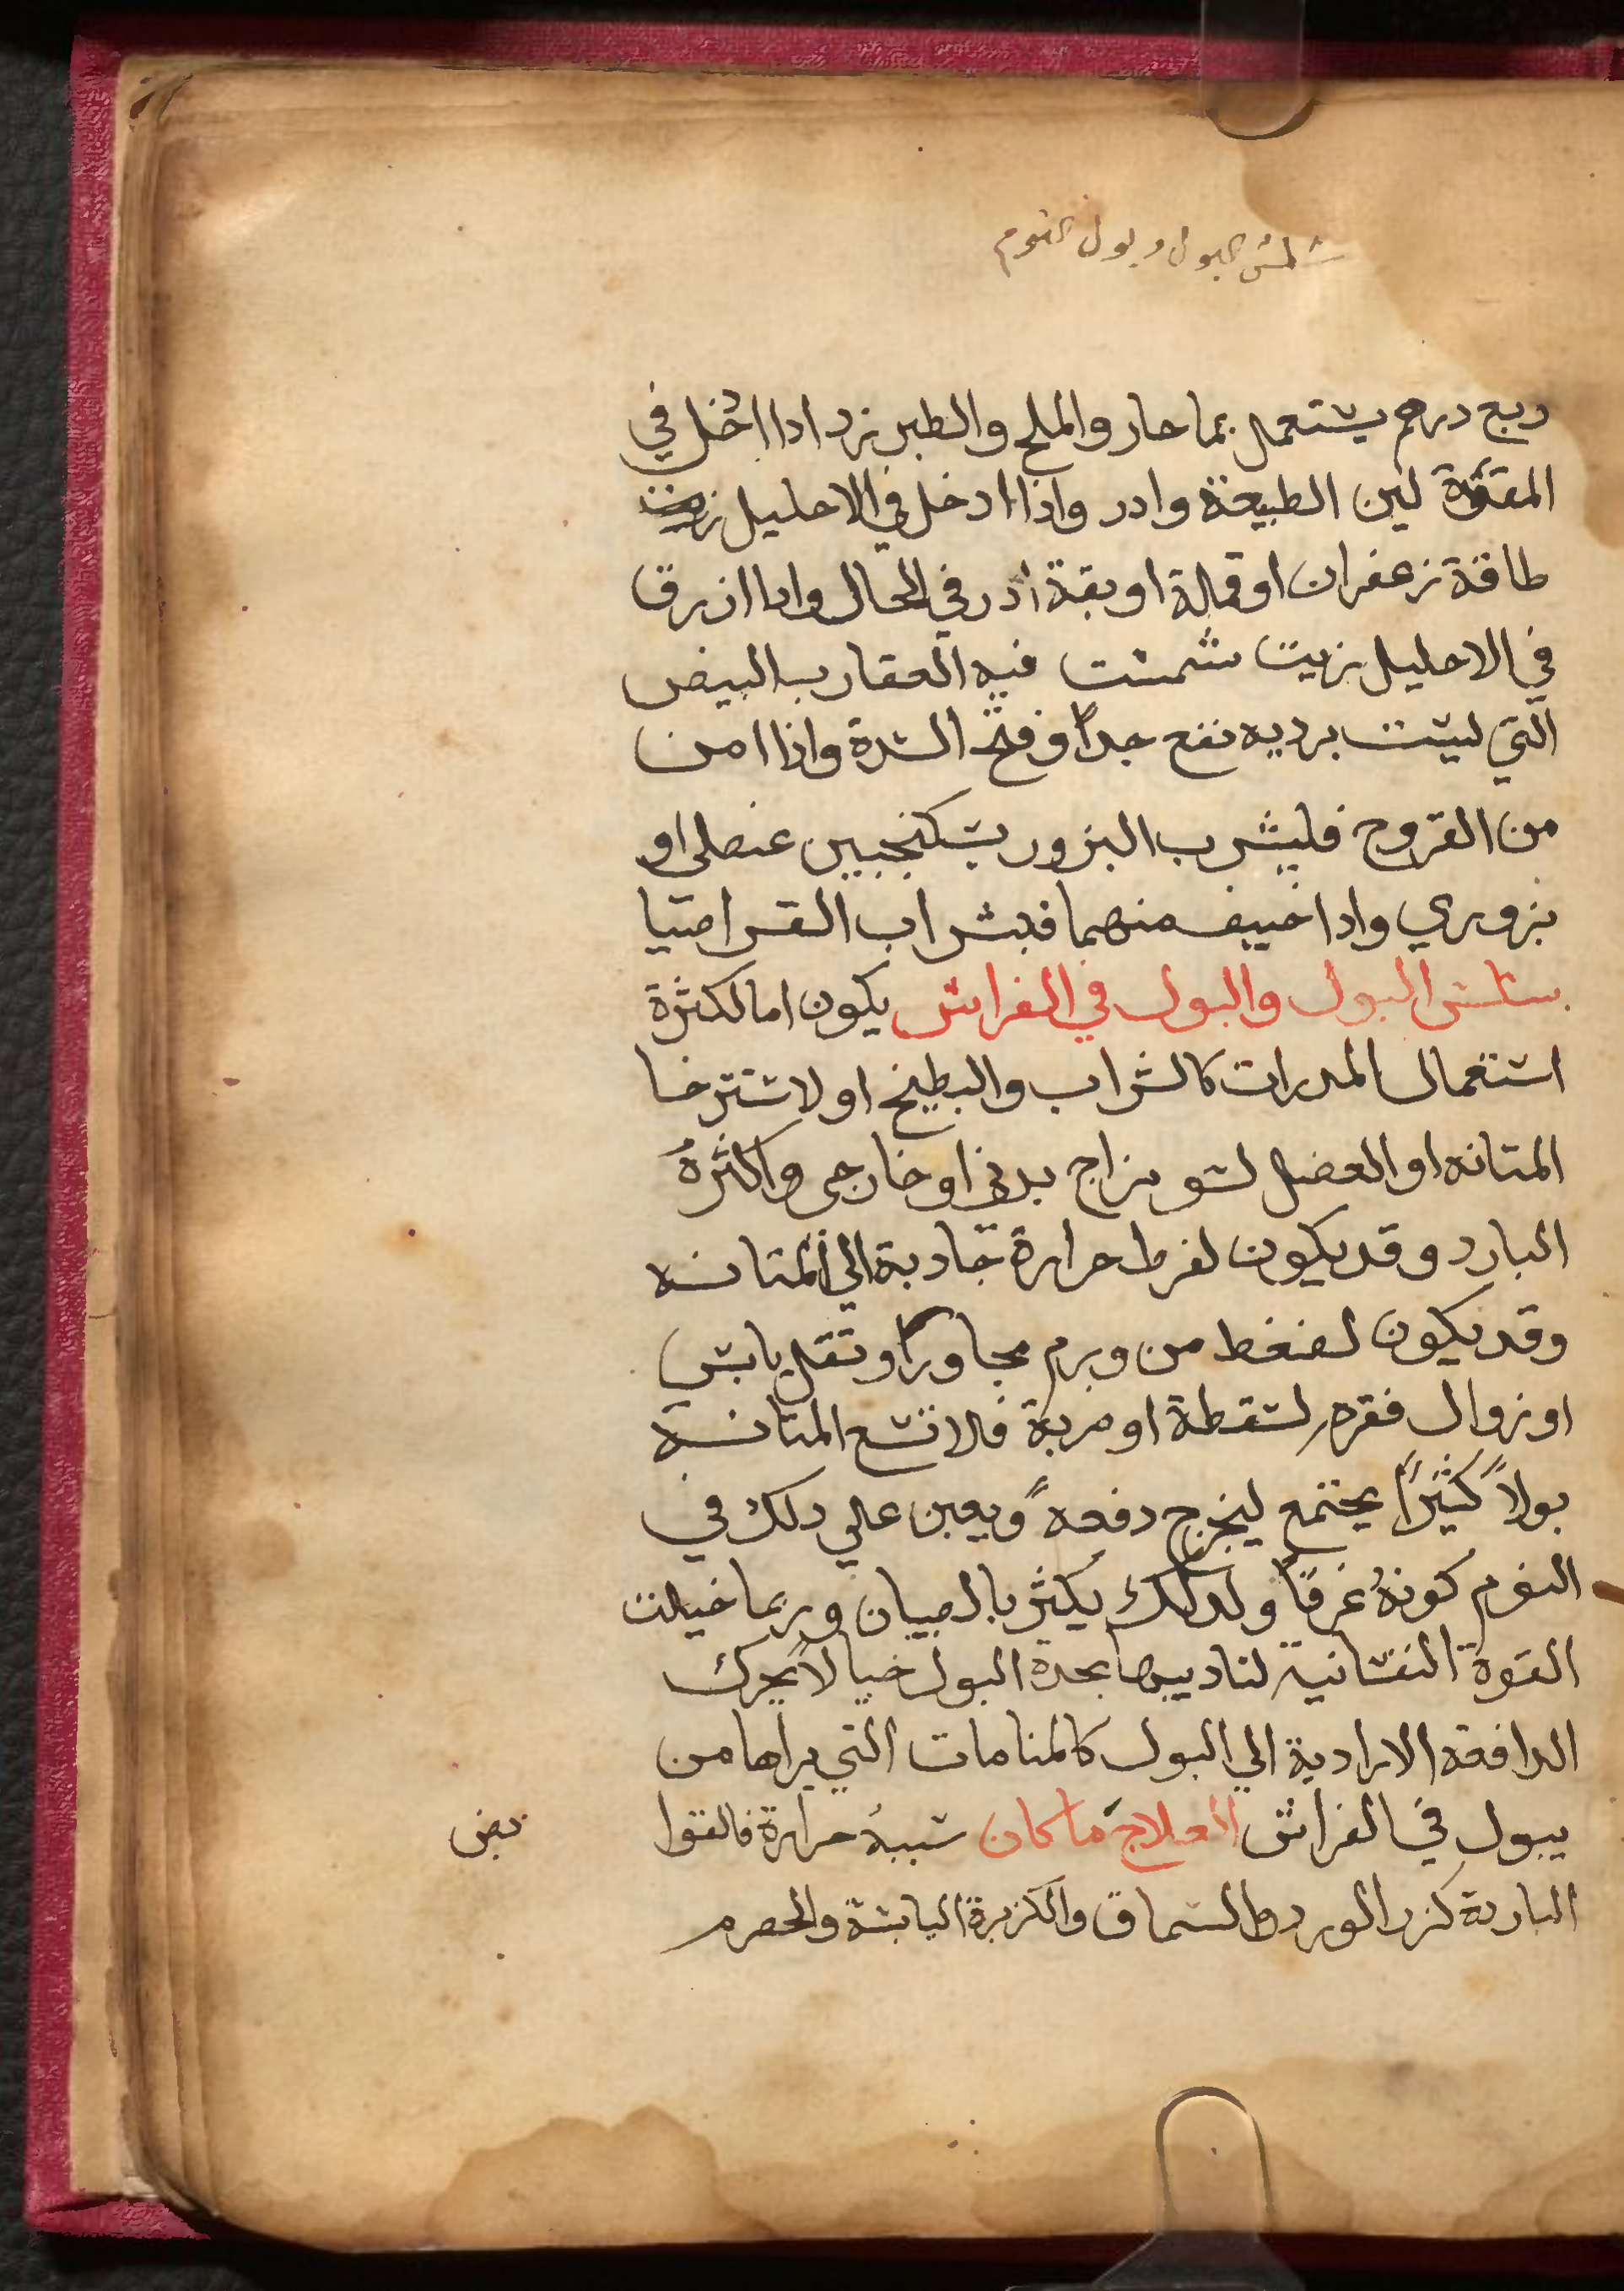 سلس البول وبول النوم
ربع درهم يستعمل بما حار والملح والطبرزد ادا ادخل في
المقعدة لين الطبيعة وادر واذا ادخل في الاحليل
طاقة زعفران او قملة او بقة ادر في الحال وادا ازرق
في الاحليل زيت شمست فيه العقارب البيض
التي ليست برديه نفع جداً وفتح السدة واذا امن
من القروح فليشرب البزور بسكنجبين عنصلي او
بزوري واذا خيف منهما فبشراب القراصيا
سلس البول والبول في الفراش يكون اما لكثرة
استعمال المدرات كالشراب والبطيخ او لاسترخا
المثانه او العضل لسو مزاج بدني او خارجي واكثرهُ
البارد وقد يكون لفرط حرارة جادبة الي المثانه
وقد يكون لضغط من ورم مجاور او ثقل يابس
او زوال فقره لسقطة او ضربة فلا تسع المثانه
بولاً كثيراً يجتمع ليخرج دفعهً ويعين علي دلك في
النوم كونهُ غرقاً ولدلك يكثر بالصبيان وربما خيلت
القوة النفسانية لتاديبها بحدة البول خيالاً يحرك
الدافعه الارادية الي البول كالمنامات التي يراها من
يبول في الفراش العلاج ما كان سببهُ حرارة فالقوا
بض
الباردة كزر الورد والسماق والكزبرة اليابسة والحصرم